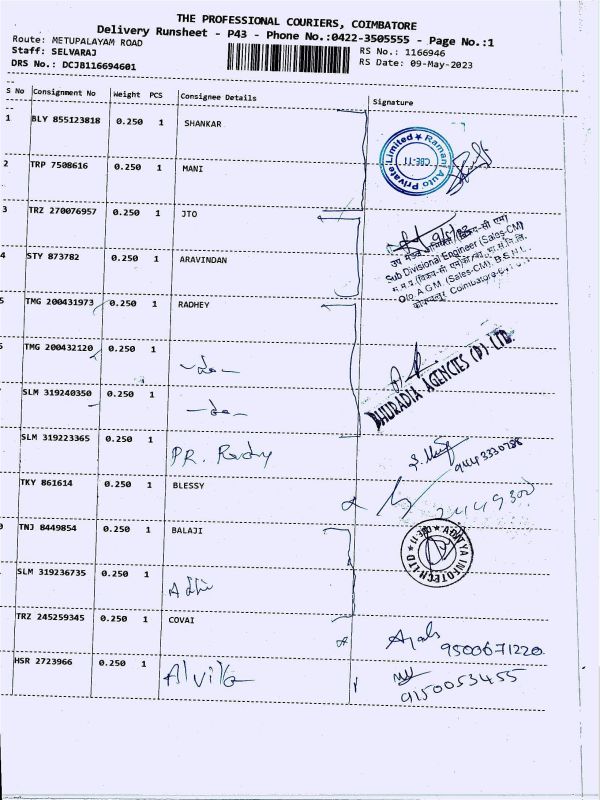 THE PROFESSIONAL COURIERS, COIMBATORE
Delivery Runsheet - P43 - Phone No.:0422-3505555 - Page No.:1
Route: METUPALAYAM ROAD
RS No.: 1166946
Staff: SELVARAJ
RS Date: 09-May-2023
DRS No.: DCJB116694601
S No Consignment No Weight PCS Consignee Details Signature
1 BLY 855123818 0.250 1 SHANKAR
Ramani Auto Private Limited ★ CBE-11
2 TRP 7508616 0.250 1 MANI
3 TRZ 270076957 0.250 1 JTO
Sub Divisional Engineer (Sales-CM)
O/o A.G.M. (Sales-CM). B.S.N.L.
4 STY 873782 0.250 1 ARAVINDAN
5 TMG 200431973 0.250 1 RADHEY
TMG 200432120 0.250 1 -do-
DHURADIA AGENCIES (P) LTD.
SLM 319240350 0.250 1 -do-
SLM 319223365 0.250 1 P.R. Reddy
9443330758
TKY 861614 0.250 1 BLESSY
2449300
TNJ 8449854 0.250 1 BALAJI
ADITYA INFOTECH LTD
SLM 319236735 0.250 1
TRZ 245259345 0.250 1 COVAI
9500671220
HSR 2723966 0.250 1
9150053455